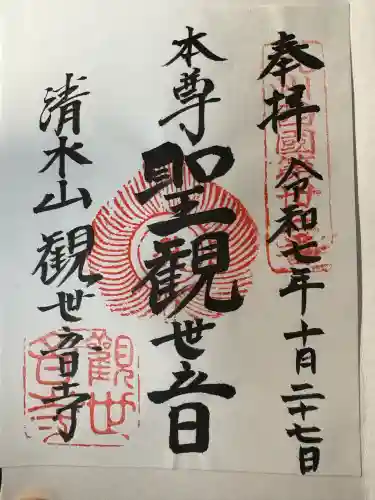 奉拝
令和七年十月二十七日
本尊
聖観世音
清水山
観世音寺
観世
音寺